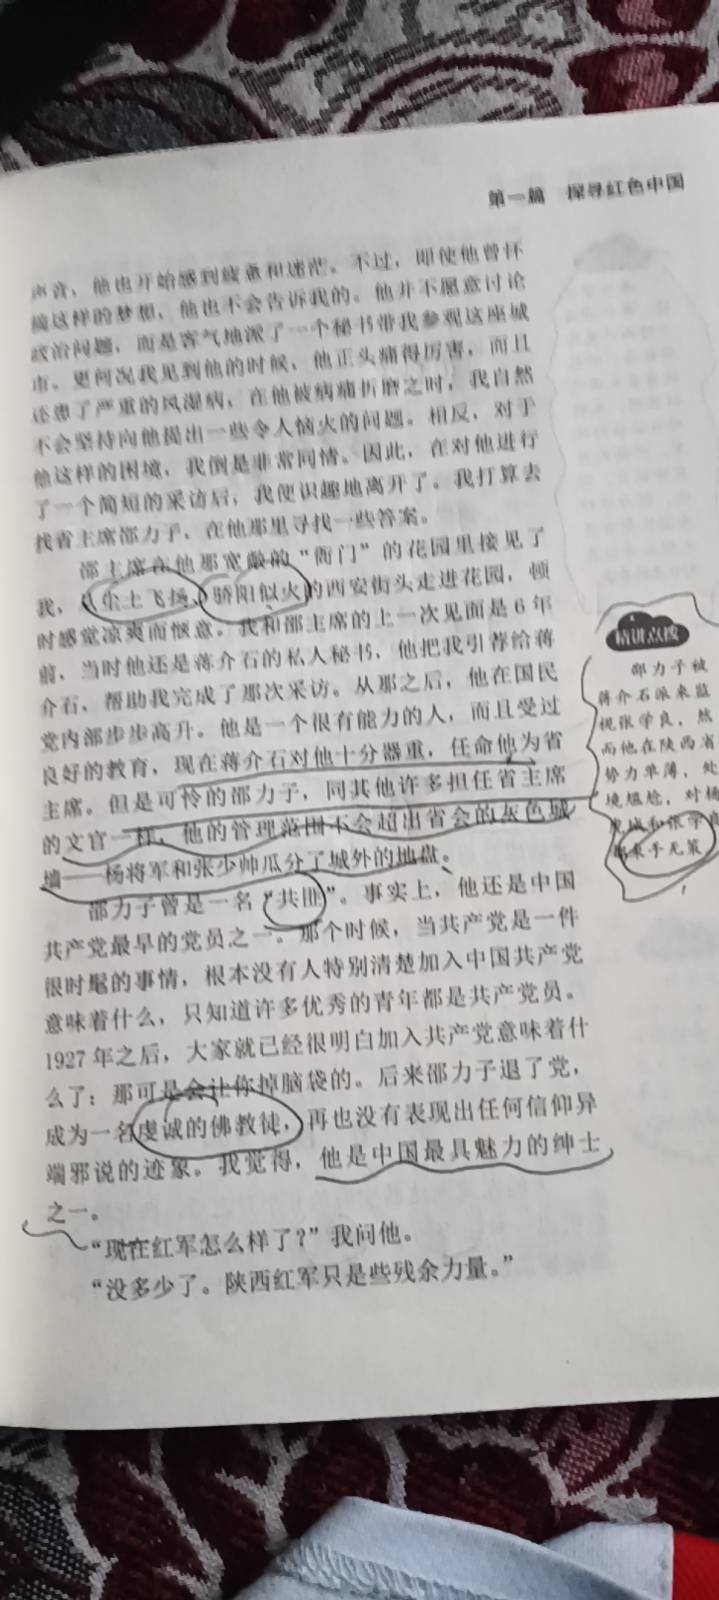 第一篇 探寻红色中国
声音，他也开始感到疲惫和迷茫。不过，即使他曾怀
揣这样的梦想，他也不会告诉我的。他并不愿意讨论
政治问题，而是客气地派了一个秘书带我参观这座城
市。更何况我见到他的时候，他正头痛得厉害，而且
还患了严重的风湿病，在他被病痛折磨之时，我自然
不会坚持向他提出一些令人恼火的问题。相反，对于
他这样的困境，我倒是非常同情。因此，在对他进行
了一个简短的采访后，我便识趣地离开了。我打算去
找省主席邵力子，在他那里寻找一些答案。
邵主席在他那宽敞的“衙门”的花园里接见了
我，从尘土飞扬、骄阳似火的西安街头走进花园，顿
时感觉凉爽而惬意。我和邵主席的上一次见面是6年
前，当时他还是蒋介石的私人秘书，他把我引荐给蒋
介石，帮助我完成了那次采访。从那之后，他在国民
党内部步步高升。他是一个很有能力的人，而且受过
良好的教育，现在蒋介石对他十分器重，任命他为省
主席。但是可怜的邵力子，同其他许多担任省主席
的文官一样，他的管理范围不会超出省会的灰色城
墙——杨将军和张少帅瓜分了城外的地盘。
邵力子曾是一名“共匪”。事实上，他还是中国
共产党最早的党员之一。那个时候，当共产党是一件
很时髦的事情，根本没有人特别清楚加入中国共产党
意味着什么，只知道许多优秀的青年都是共产党员。
1927年之后，大家就已经很明白加入共产党意味着什
么了：那可是会让你掉脑袋的。后来邵力子退了党，
成为一名虔诚的佛教徒，再也没有表现出任何信仰异
端邪说的迹象。我觉得，他是中国最具魅力的绅士
之一。
“现在红军怎么样了？”我问他。
“没多少了。陕西红军只是些残余力量。”
精讲点拨
邵力子被
蒋介石派来监
视张学良，然
而他在陕西省
势力单薄，处
境尴尬，对杨
虎城和张学良
都束手无策